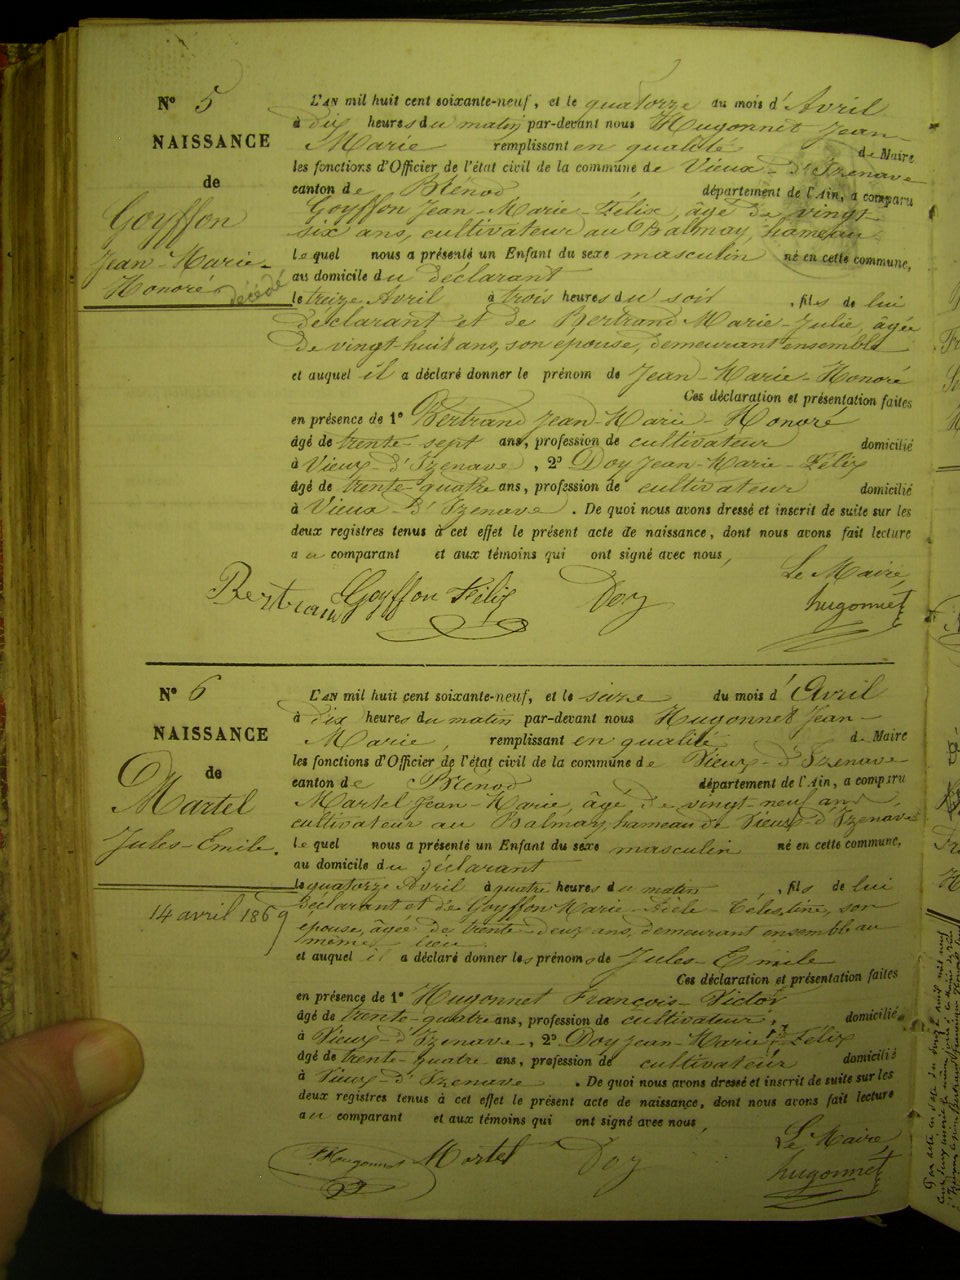 N° 5
NAISSANCE
de
Goyffon
Jean-Marie-
Honoré
décédé
L'AN mil huit cent soixante-neuf, et le quatorze du mois d'Avril
à dix heures du matin par-devant nous Hugonnet Jean
Marie remplissant en qualité de Maire
les fonctions d'Officier de l'état civil de la commune de Vieux-d'Izenave
canton de Brénod département de l'Ain, a comparu
Goyffon Jean-Marie-Félix, âgé de vingt
six ans, cultivateur au Balmay, hameau
le quel nous a présenté un Enfant du sexe masculin né en cette commune,
au domicile du déclarant
le treize Avril à trois heures du soir, fils de lui
déclarant et de Bertrand Marie-Julie, âgée
de vingt-huit ans, son épouse, demeurant ensemble
et auquel il a déclaré donner le prénom de Jean-Marie-Honoré
Ces déclaration et présentation faites
en présence de 1° Bertrand Jean-Marie-Honoré
âgé de trente-sept ans, profession de cultivateur domicilié
à Vieux-d'Izenave, 2° Doy Jean-Marie-Félix
âgé de trente-quatre ans, profession de cultivateur domicilié
à Vieux-d'Izenave. De quoi nous avons dressé et inscrit de suite sur les
deux registres tenus à cet effet le présent acte de naissance, dont nous avons fait lecture
au comparant et aux témoins qui ont signé avec nous,
Le Maire,
Bertrand Goyffon Félix Doy hugonnet
N° 6
NAISSANCE
de
Martel
Jules-Emile.
14 avril 1869
L'AN mil huit cent soixante-neuf, et le seize du mois d'Avril
à dix heures du matin par-devant nous Hugonnet Jean-
Marie, remplissant en qualité de Maire
les fonctions d'Officier de l'état civil de la commune de Vieux-d'Izenave
canton de Brénod département de l'Ain, a comparu
Martel Jean-Marie, âgé de vingt-neuf ans,
cultivateur au Balmay, hameau de Vieux-d'Izenave
le quel nous a présenté un Enfant du sexe masculin né en cette commune,
au domicile du déclarant
le quatorze Avril à quatre heures du matin, fils de lui
déclarant et de Goyffon Marie- Célestine, son
épouse, âgée de trente-deux ans, demeurant ensemble au
même lieu
et auquel il a déclaré donner les prénoms de Jules-Emile
Ces déclaration et présentation faites
en présence de 1° Hugonnet François-Victor
âgé de trente-quatre ans, profession de cultivateur, domicilié
à Vieux-d'Izenave, 2° Doy Jean-Marie-Félix
âgé de trente-quatre ans, profession de cultivateur domicilié
à Vieux-d'Izenave. De quoi nous avons dressé et inscrit de suite sur les
deux registres tenus à cet effet le présent acte de naissance, dont nous avons fait lecture
au comparant et aux témoins qui ont signé avec nous,
Le Maire,
Hugonnet Martel Doy hugonnet